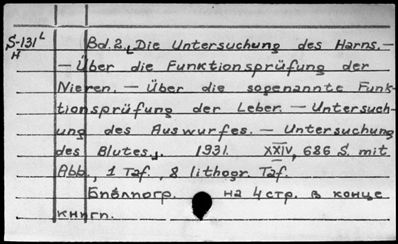 S-131 L Bd. 2. Die Untersuchung des Harns. –
H – Über die Funktionsprüfung der
Nieren. – Über die sogenannte Funk-
tionsprüfung der Leber. – Untersuch-
ung des Auswurfes. – Untersuchung
des Blutes. 1931. XXIV, 686 S. mit
Abb., 1 Taf., 8 lithogr. Taf.
Библиогр. на 4 стр. в конце
книги.